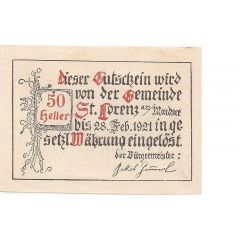 Dieser Gutschein wird
von der Gemeinde
50
Heller
St. Lorenz am/Mondsee
bis 28. Feb. 1921 in ge
setzl. Währung eingelöst.
der Bürgermeister: